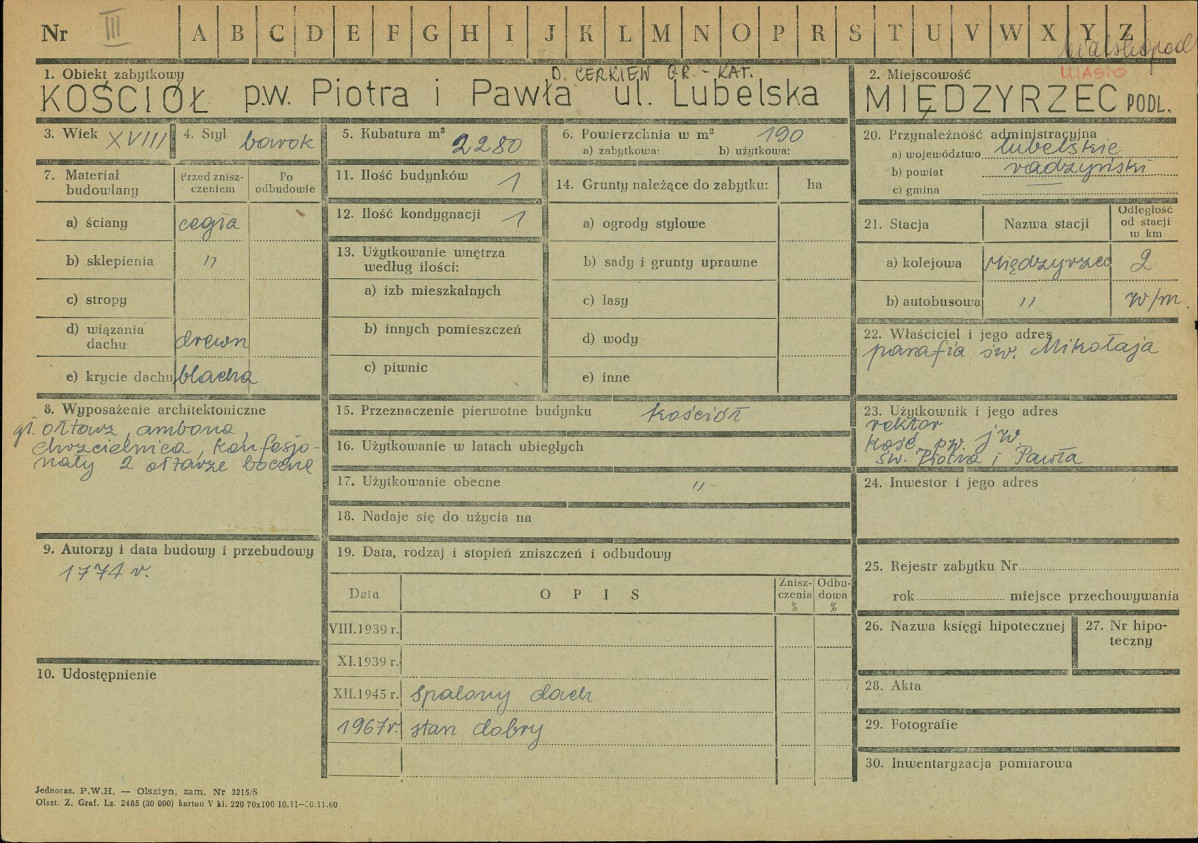 Nr III A B C D E F G H I J K L M N O P R S T U V W X Y Z
MIASTO
1. Obiekt zabytkowy
D. CERKIEW GR.-KAT.
KOŚCIÓŁ p.w. Piotra i Pawła ul. Lubelska
2. Miejscowość
MIĘDZYRZEC PODL.
3. Wiek XVIII
4. Styl barok
5. Kubatura m³ 2280
6. Powierzchnia w m² 190
a) zabytkowa: b) użytkowa:
7. Materiał budowlany
Przed znisz-
czeniem
Po
odbudowie
a) ściany cegła
b) sklepienia "
c) stropy
d) wiązania
dachu drewn
e) krycie dachu blacha
8. Wyposażenie architektoniczne
gł. ołtarz, ambona,
chrzcielnica, konfesjo-
nały 2 ołtarze boczne
9. Autorzy i data budowy i przebudowy
1774 r.
10. Udostępnienie
11. Ilość budynków 1
12. Ilość kondygnacji 1
13. Użytkowanie wnętrza
według ilości:
a) izb mieszkalnych
b) innych pomieszczeń
c) piwnic
14. Grunty należące do zabytku: ha
a) ogrody stylowe
b) sady i grunty uprawne
c) lasy
d) wody
e) inne
15. Przeznaczenie pierwotne budynku kościół
16. Użytkowanie w latach ubiegłych
17. Użytkowanie obecne "
18. Nadaje się do użycia na
19. Data, rodzaj i stopień zniszczeń i odbudowy
Data OPIS Znisz-
czenia
% Odbu-
dowa
%
VIII.1939 r.
XI.1939 r.
XII.1945 r. spalony dach
1967r. stan dobry
20. Przynależność administracyjna
a) województwo lubelskie
b) powiat radzyński
c) gmina —
21. Stacja Nazwa stacji Odległość
od stacji
w km
a) kolejowa Międzyrzec 2
b) autobusowa " w/m.
22. Właściciel i jego adres
parafia św. Mikołaja
23. Użytkownik i jego adres
rektor
kość. pw. jw.
św. Piotra i Pawła
24. Inwestor i jego adres
25. Rejestr zabytku Nr
rok miejsce przechowywania
26. Nazwa księgi hipotecznej
27. Nr hipo-
teczny
28. Akta
29. Fotografie
30. Inwentaryzacja pomiarowa
Jednoraz. P.W.H. — Olsztyn, zam. Nr 3215/S
Olszt. Z. Graf. Lz. 2485 (30 000) karton V kl. 220 70x100 10.11—30.11.60